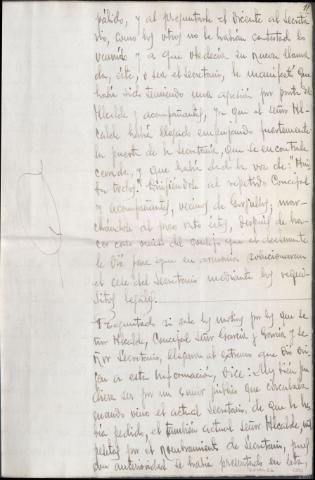 pálido, y al preguntarle el Dicente al Secreta-
rio, como los otros no le habían contestado lo
ocurrido y a que obedecía su nueva llama-
da, éste, o sea el secretario, le manifestó que
había sido temiendo una agresión por parte del
Alcalde y acompañantes, ya que el señor Al-
calde había llegado empujando fuertemente
la puerta de la Secretaría, que se encontraba
cerrada, y que había dado la voz de: "
todos" dirigiéndose al repetido Concejal
y acompañantes, vecinos de mar-
chándose al poco rato éstos, después de ha-
cer caso omiso del consejo que el declarante
le dió para que en armonía solucionaran
el cese del Secretario mediante los requi-
sitos legales.
Preguntado si sabe los motivos por los que se-
ñor Alcalde, Concejal señor García y García y se-
ñor Secretario, llegaron al extremo que dió ori-
gen a esta Información, dice: Muy bien pu-
diera ser por un rumor público que circulaba
cuando vino el actual Secretario, de que le ha-
bía pedido, el también actual señor Alcalde,
pesetas por el nombramiento de Secretario, pues
con anterioridad se había presentado en ésta,